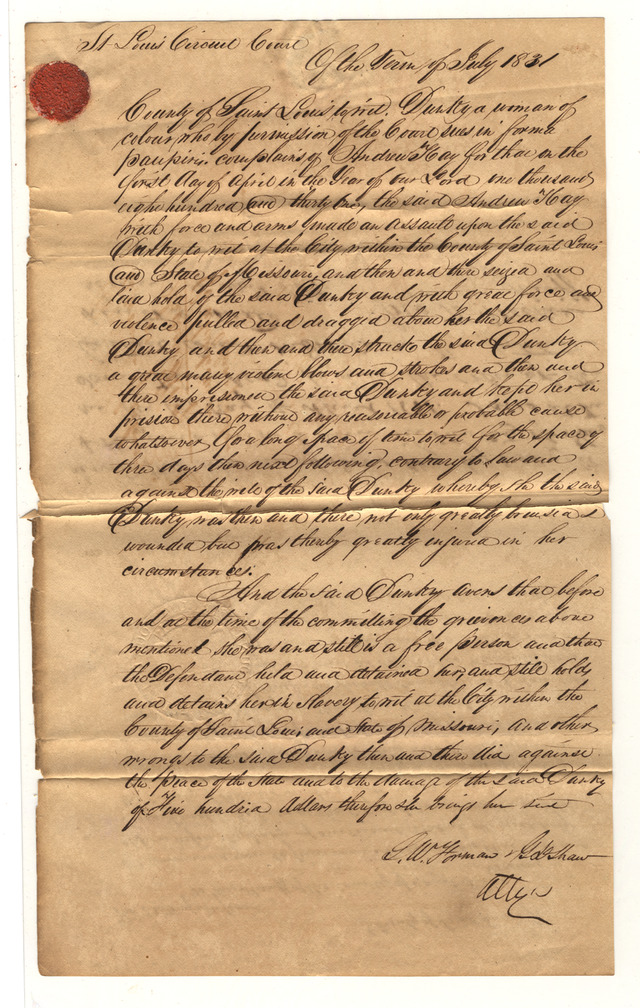 St Louis Circuit Court
Of the Term of July 1831
County of Saint Louis to wit. Dunky a woman of
colour who by permission of the Court sues in forma
pauperis. complains of Andrew Hay for that on the
first day of April in the Year of our Lord one thousand
eight hundred and thirty one, the said Andrew Hay
with force and arms made an assault upon the said
Dunky to wit at the City within the County of Saint Louis
and State of Missouri, and then and there seized and
laid hold of the said Dunky and with great force and
violence pulled and dragged about her the said
Dunky, and then and there struck the said Dunky
a great many violent blows and strokes and then and
there imprisoned the said Dunky and kept her in
prision there without any reasonable or probable cause
whatsoever for a long space of time to wit for the space of
three days then next following, contrary to law and
against the will of the said Dunky whereby she the said
Dunky was then and there not only greatly bruised &
wounded but was thereby greatly injured in her
circumstances.
And the said Dunky avers that before
and at the time of the committing the grievances above
mentioned she was and still is a free person and that
the Defendant held and detained her, and still holds
and detains her in Slavery to wit at the City within the
County of Saint Louis and State of Missouri, and other
wrongs to the said Dunky then and there did against
the peace of the State and to the damage of the said Dunky
of Five hundred dollars therefore she brings her suit
& Shaw
Attys